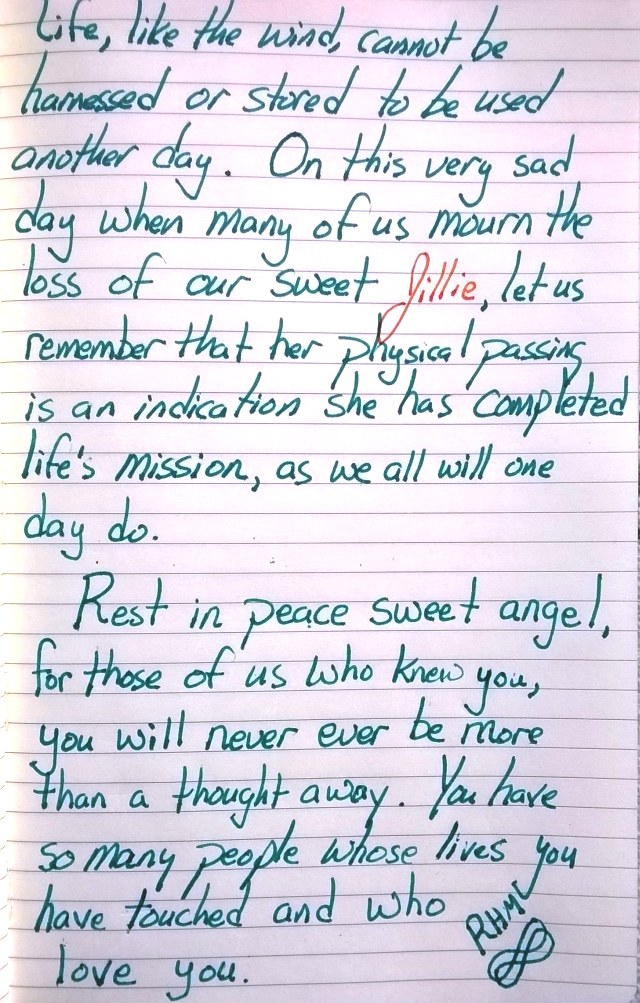 Life, like the wind, cannot be
harnessed or stored to be used
another day. On this very sad
day when many of us mourn the
loss of our sweet Jillie, let us
remember that her physical passing
is an indication she has completed
life's mission, as we all will one
day do.
Rest in peace sweet angel,
for those of us who knew you,
you will never ever be more
than a thought away. You have
so many people whose lives you
have touched and who
love you.
RHM